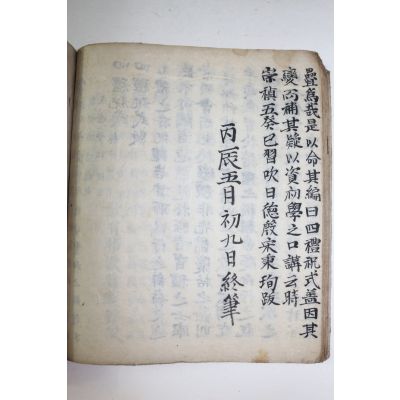 疊焉哉是以命其編曰四禮祝式盖因其
變而補其疑以資初學之口講云時
崇禎五癸巳習吹日德殷宋秉珣跋
丙辰五月初九日終筆